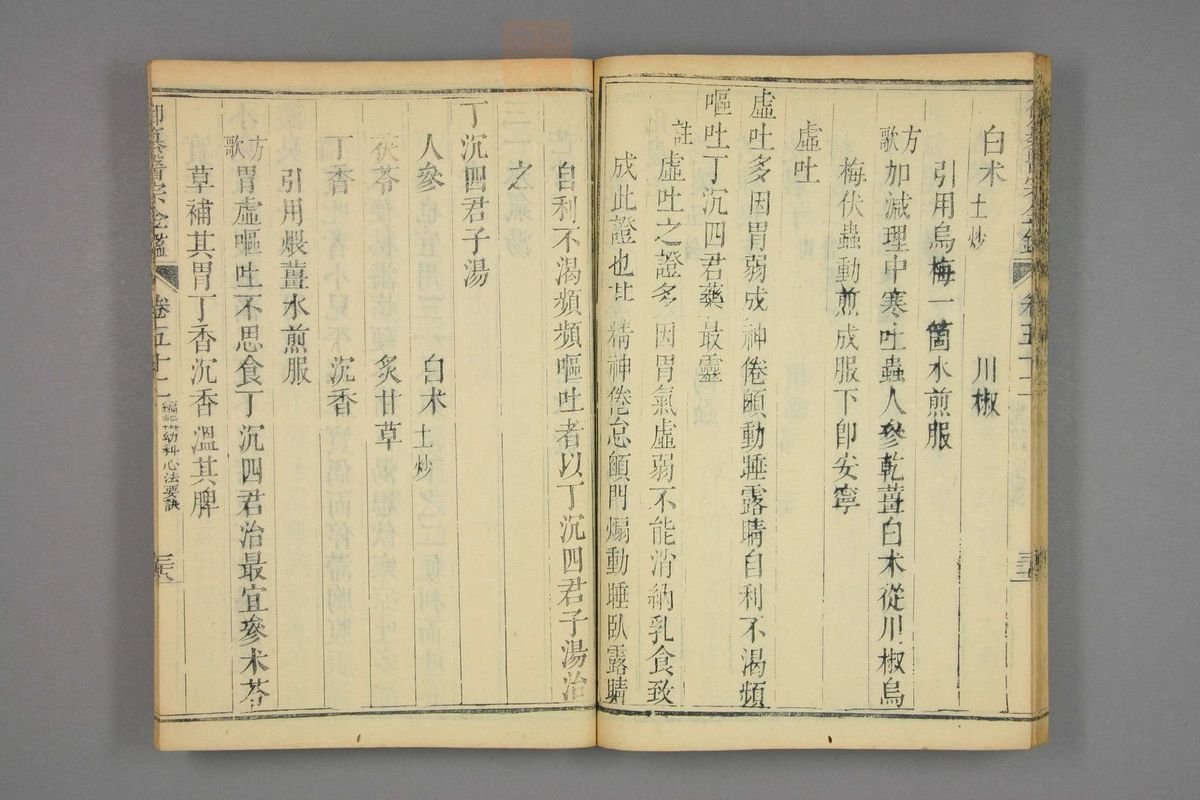 白术土炒　川椒
引用烏梅一箇水煎服
方歌　加減理中寒吐蟲人參乾薑白术從川椒烏
梅伏蟲動煎成服下卽安寧
虛吐
虛吐多因胃弱成神倦顖動睡露睛自利不渴頻
嘔吐丁沉四君藥最靈
註　虛吐之證多因胃氣虛弱不能消納乳食致
成此證也其精神倦怠顖門煽動睡臥露睛
自利不渴頻頻嘔吐者以丁沉四君子湯治
之
丁沉四君子湯
人參　白术土炒
茯苓　炙甘草
丁香　沉香
引用煨薑水煎服
方歌　胃虛嘔吐不思食丁沉四君治最宜參术苓
草補其胃丁香沉香溫其脾
御纂醫宗金鑑　卷五十二　編輯幼科心法要訣